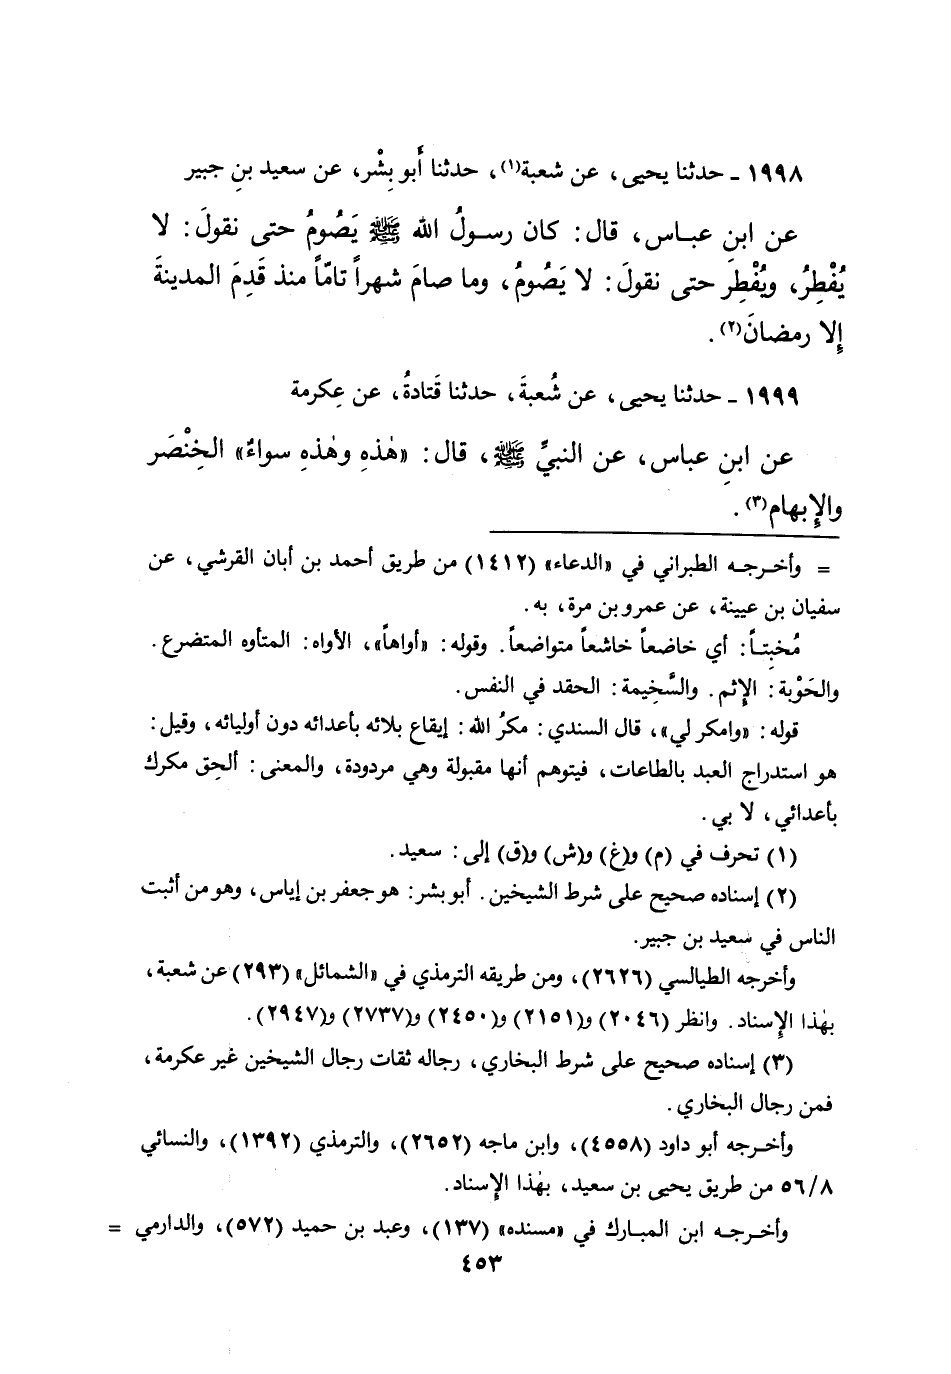 ١٩٩٨ ـ حدثنا يحيى، عن شعبة(١)، حدثنا أَبو بِشْر، عن سعيد بنِ جبير
عن ابن عباس، قال: كان رسولُ الله ﷺ يَصُومُ حتى نقولَ: لا
يُفْطِرُ، ويُفْطِرَ حتى نقولَ: لا يَصُومُ، وما صامَ شهراً تامّاً منذ قَدِمَ المدينةَ
إلا رمضانَ(٢).
١٩٩٩ ـ حدثنا يحيى، عن شُعبةَ، حدثنا قَتادةُ، عن عِكرمة
عن ابنِ عباس، عن النبيِّ ﷺ، قال: «هٰذهِ وهٰذهِ سواءٌ» الخِنْصَر
والإِبهام(٣).
= وأخرجه الطبراني في «الدعاء» (١٤١٢) من طريق أحمد بن أبان القرشي، عن
سفيان بن عيينة، عن عمرو بن مرة، به.
مُخبِتاً: أي خاضعاً خاشعاً متواضعاً. وقوله: «أواهاً»، الأواه: المتأوه المتضرع.
والحَوْبة: الإِثم. والسَّخِيمة: الحقد في النفس.
قوله: «وامكر لي»، قال السندي: مكرُ الله: إيقاع بلائه بأعدائه دون أوليائه، وقيل:
هو استدراج العبد بالطاعات، فيتوهم أنها مقبولة وهي مردودة، والمعنى: ألحِق مكرك
بأعدائي، لا بي.
(١) تحرف في (م) و(غ) و(ش) و(ق) إلى: سعيد.
(٢) إسناده صحيح على شرط الشيخين. أبو بشر: هو جعفر بن إياس، وهو من أثبت
الناس في سعيد بن جبير.
وأخرجه الطيالسي (٢٦٢٦)، ومن طريقه الترمذي في «الشمائل» (٢٩٣) عن شعبة،
بهٰذا الإِسناد. وانظر (٢٠٤٦) و(٢١٥١) و(٢٤٥٠) و(٢٧٣٧) و(٢٩٤٧).
(٣) إسناده صحيح على شرط البخاري، رجاله ثقات رجال الشيخين غير عكرمة،
فمن رجال البخاري.
وأخرجه أبو داود (٤٥٥٨)، وابن ماجه (٢٦٥٢)، والترمذي (١٣٩٢)، والنسائي
٥٦/٨ من طريق يحيى بن سعيد، بهٰذا الإِسناد.
وأخرجه ابن المبارك في «مسنده» (١٣٧)، وعبد بن حميد (٥٧٢)، والدارمي =
٤٥٣